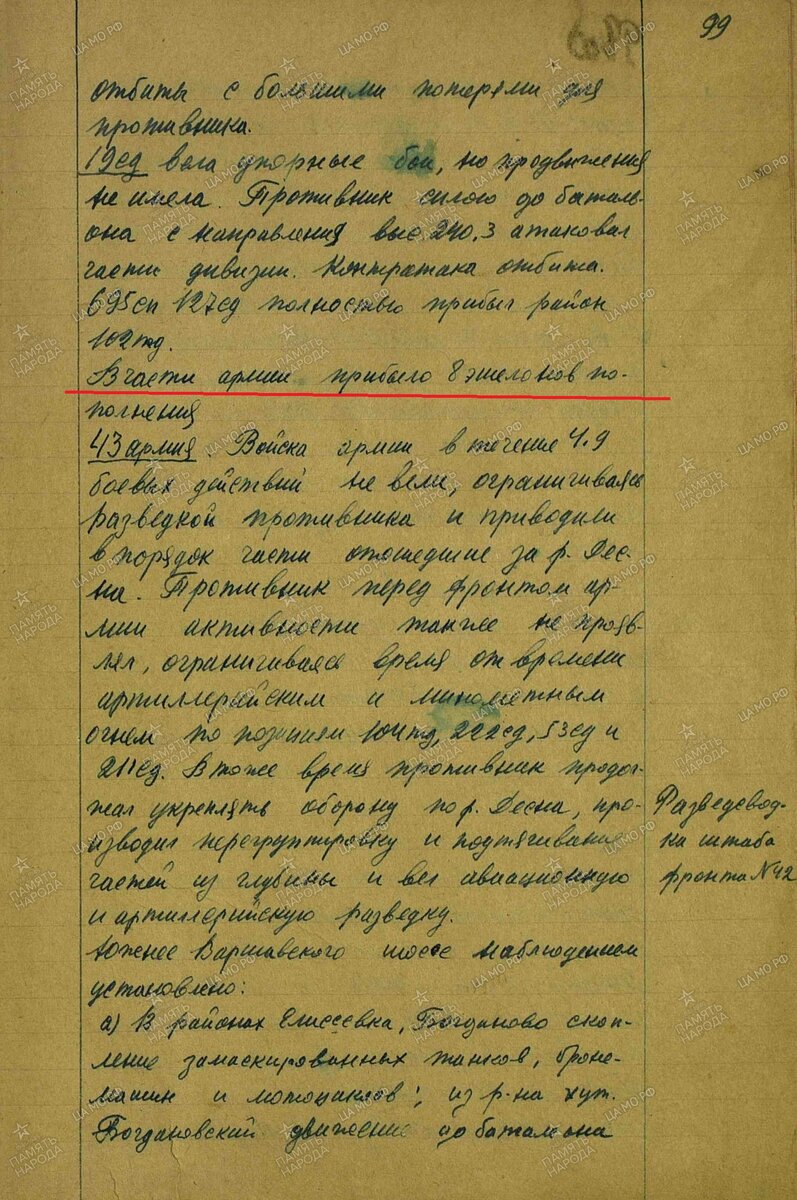 99
отбиты с большими потерями для
противника.
19сд вела упорные бои, но продвижения
не имела. Противник силою до баталь-
она с направления выс 240,3 атаковал
части дивизии. Контратака отбита.
695сп 127сд полностью прибыл район
102тд.
В части армии прибыло 8 эшелонов по-
полнения
43 армия. Войска армии в течение 4.9
боевых действий не вели, ограничиваясь
разведкой противника и приводили
в порядок части отошедшие за р. Дес-
на. Противник перед фронтом ар-
мии активности также не прояв-
лял, ограничиваясь время от времени
артиллерийским и минометным
огнем по позициям 104тд, 222сд, 53сд и
211сд. В тоже время противник продол-
жал укреплять оборону по р. Десна, про-
изводил перегруппировку и подтягивание
частей из глубины и вел авиационную
и артиллерийскую разведку.
Южнее Варшавского шоссе наблюдением
установлено:
а) В районах Елисеевка, Богданово скоп-
ление замаскированных танков, броне-
машин и мотоциклов; из р-на хут.
Богдановский движение до батальона
Разведсвод-
ка штаба
фронта №42
ПАМЯТЬ НАРОДА
ЦАМО.РФ